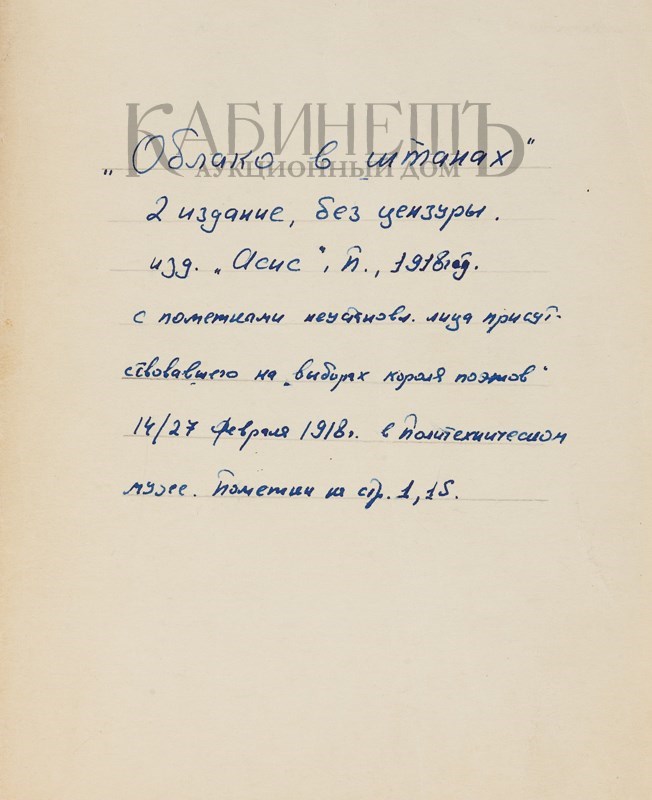 КАБИНЕТЪ
АУКЦИОННЫЙ ДОМ
„Облако в штанах"
2 издание, без цензуры.
изд. „Асис", П., 1918 год.
с пометками неустановл. лица присут-
ствовавшего на „выборах короля поэтов"
14/27 февраля 1918г. в Политехническом
музее. Пометки на стр. 1, 15.